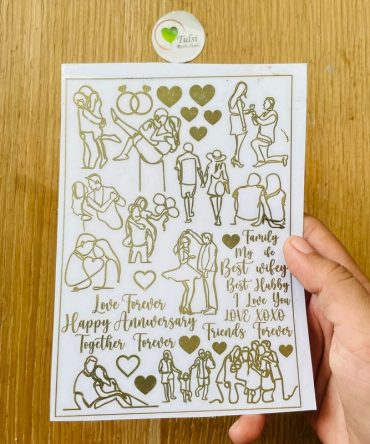 Tulsi
Family
My life
Best wifey
Best Hubby
I Love You
LOVE XOXO
Love Forever
Happy Anniversary
Together Forever
Friends Forever